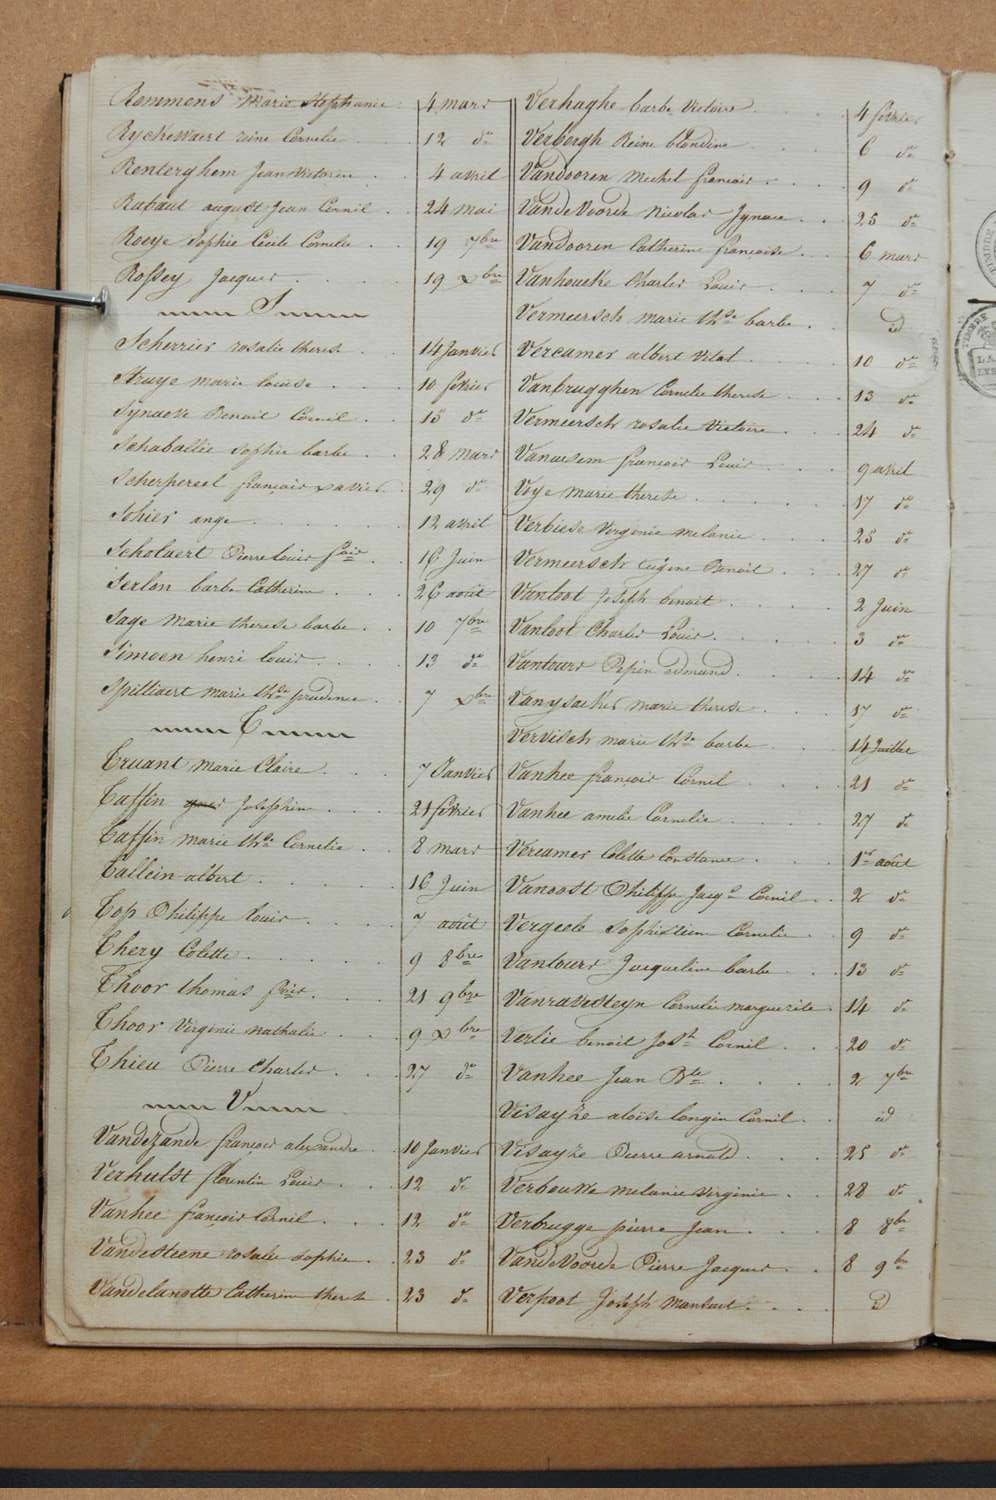 Rommens Marie Stephanie 4 mars
Ryckewaert reine Cornelie 12 do
Renterghem Jean Victorin 4 avril
Rabaut august Jean Cornil 24 mai
Roeye Sophie Cecile Cornelie 19 7bre
Rossey Jacques 19 Xbre
S
Scherrier rosalie therese 14 Janvier
Struye marie louise 10 fevrier
Synaeve Benoit Cornil 15 do
Schabaillie Sophie barbe 28 mars
Scherpereel françois xavier 29 do
Sohier ange 12 avril
Scholaert Pierre louis fcois 16 Juin
Serlon barbe Catherine 26 août
Sage Marie therese barbe 10 7bre
Simoen henri louis 13 do
Spilliaert marie thse prudence 7 Xbre
T
Truant Marie Claire 7 Janvier
Taffin Josephine 21 fevrier
Taffin marie thse Cornelie 8 mars
Tallein albert 16 Juin
Top Philippe louis 7 août
Thery Colette 9 8bre
Thoor thomas fcois 21 9bre
Thoor Virginie nathalie 9 Xbre
Thieu Pierre Charles 27 do
V
Vandezande françois alexandre 10 Janvier
Verhulst florentin Louis 12 do
Vanhee françois Cornil 12 do
Vandesteene rosalie sophie 23 do
Vandelanotte Catherine therese 23 do
Verhaghe barbe Victoire 4 fevrier
Verborgh Reine blondine 6 do
Vandooren Michel françois 9 do
Vandevoorde Nicolas Ignace 25 do
Vandooren Catherine françoise 6 mars
Vanhoucke Charles Louis 7 do
Vermeersch marie thse barbe id
Vercamer albert Vital 10 do
Vanbrugghen Cornelie therese 13 do
Vermeersch rosalie Victoire 24 do
françois Louis 9 avril
Voye marie therese 17 do
Verbiese Virginie Melanie 25 do
Vermeersch Eugene Benoit 27 do
Vanloot Joseph benoit 2 Juin
Vanloot Charles Louis 3 do
Vantours Pepin edmund 14 do
Vanysacker marie therese 17 do
Vervisch marie thse barbe 14 Juillet
Vanhee françois Cornil 21 do
Vanhee amelie Cornelie 27 do
Vercamer Colette Constance 1er août
Vanoost Philippe Jacqs Cornil 2 do
Cornelie 9 do
Vantours Jacqueline barbe 13 do
Vanravesteyn Cornelie marguerite 14 do
Verlie benoit Josh Cornil 20 do
Vanhee Jean Bte 2 7bre
Visayze aloise longin Cornil id
Visayze Pierre arnold 25 do
Verbouwe melanie virginie 28 do
Verbrugge pierre Jean 8 8bre
Vandevoorde Pierre Jacques 8 9bre
Verpoot Joseph Mansuet D